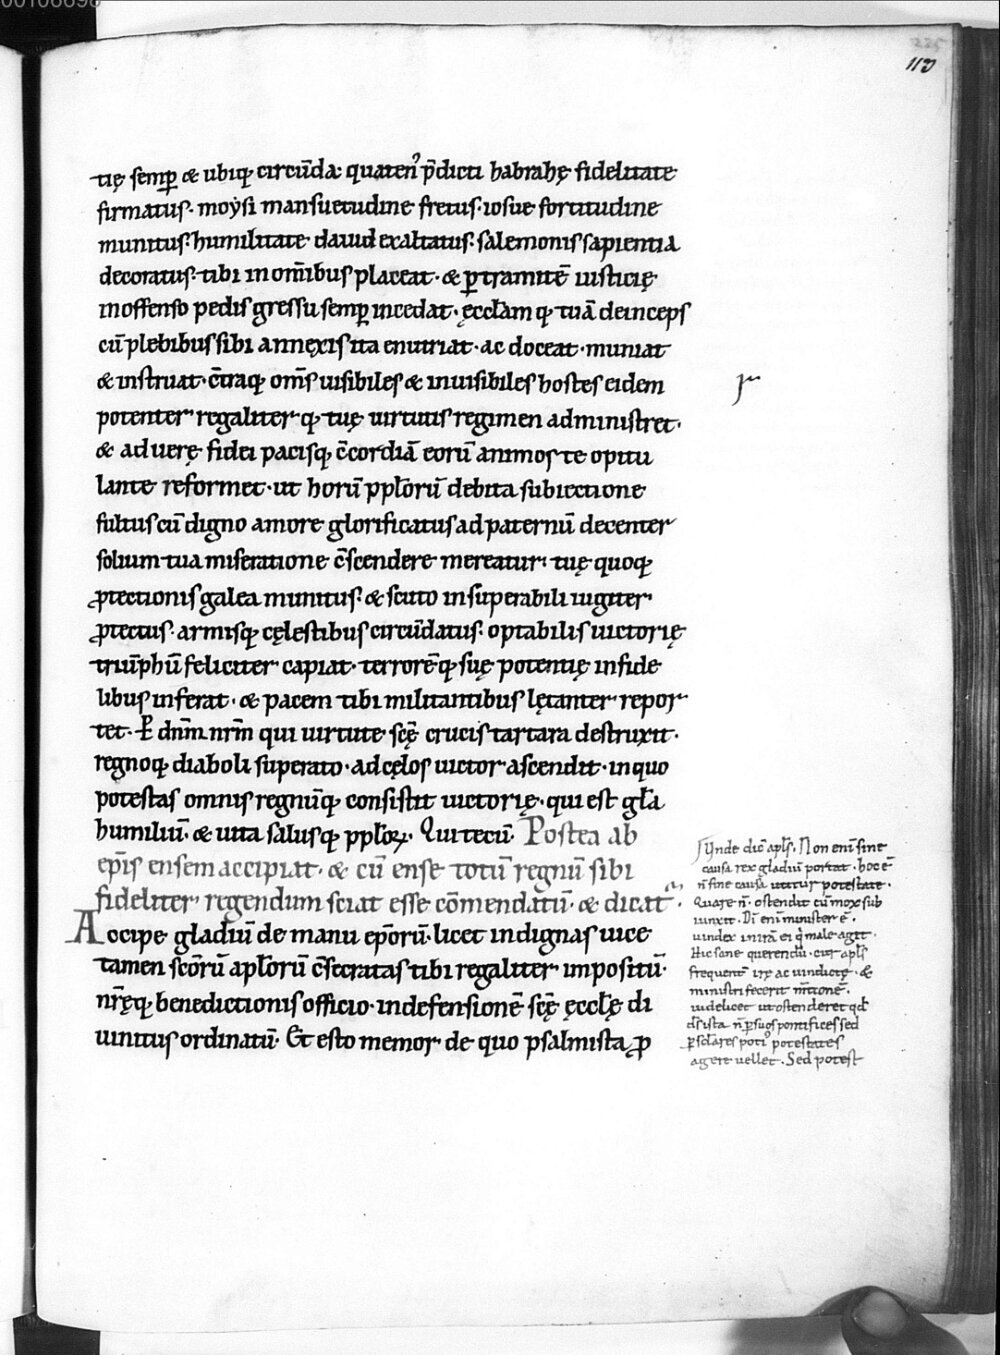 00106698
225
113
tię semꝑ & ubiq; circūda· quaten᾽ p̄dicti habrahę fidelitate
firmatus· moẏsi mansuetudine fretus· iosue fortitudine
munitus· humilitate dauid exaltatus· salemonis sapientia
decoratus· tibi in om̄ibus placeat· & ꝑ tramitē iusticię
inoffenso pedis gressu semꝑ incedat· ęccl̄am q; tuā deinceps
cū plebibus sibi annexis ita enutriat· ac doceat· muniat
& instruat· c̄traq; om̄s uisibiles & inuisibiles hostes eidem
potenter regaliter q; tuę uirtutis regimen administret·
& ad uerę fidei pacisq; c̄cordiā eorū animos te opitu
lante reformet· ut horū ppl̄orū debita subiectione
fultus cū digno amore glorificatus ad paternū decenter
solium tua miseratione c̄scendere mereatur· tuę quoq;
ꝓtectionis galea munitus· & scuto insuperabili iugiter
ꝓtectus· armisq; cęlestibus circūdatus· optabilis uictorię
triūphū feliciter capiat· terrorēq; suę potentię infide
libus inferat· & pacem tibi militantibus lętanter repor
tet· P dn̄m nr̄m qui uirtute sc̄ę crucis tartara destruxit·
regnoq; diaboli superato· ad cęlos uictor ascendit· in quo
potestas omnis regnūq; consistit uictorię· qui est gl̄a
humiliū· & uita salusq; ppl̄oꝝ· Qui tecū· Postea ab
ep̄is ensem accipiat· & cū ense totū regnū sibi
fideliter regendum sciat esse cōmendatū· & dicat·
Accipe gladiū de manu ep̄orū· licet indignas uice
tamen sc̄orū apl̄orū c̄secratas tibi regaliter impositū·
nr̄ęq; benedictionis officio· in defensionē sc̄ę ęccl̄ę di
uinitus ordinatū· Et esto memor de quo psalmista ꝓ
Unde dic̄ apl̄s· Non eni᷑ sine
causa rex gladiū portat· hoc ē
n̄ sine causa utitur potestate·
Quare n̄· ostendit cū mox sub
iunxit· Dī eni᷑ minister ē·
uindex in irā ei q̄ male agit·
Hic sane querendū· cur apl̄s
frequent̄ irę ac uindictę· &
ministri fecerit m̄tionē·
uidelicet ut ostenderet qd̄
d̄s ista n̄ ꝑ suos pontifices sed
ꝑ sclares poti᾽ potestates
agere uellet· Sed potest